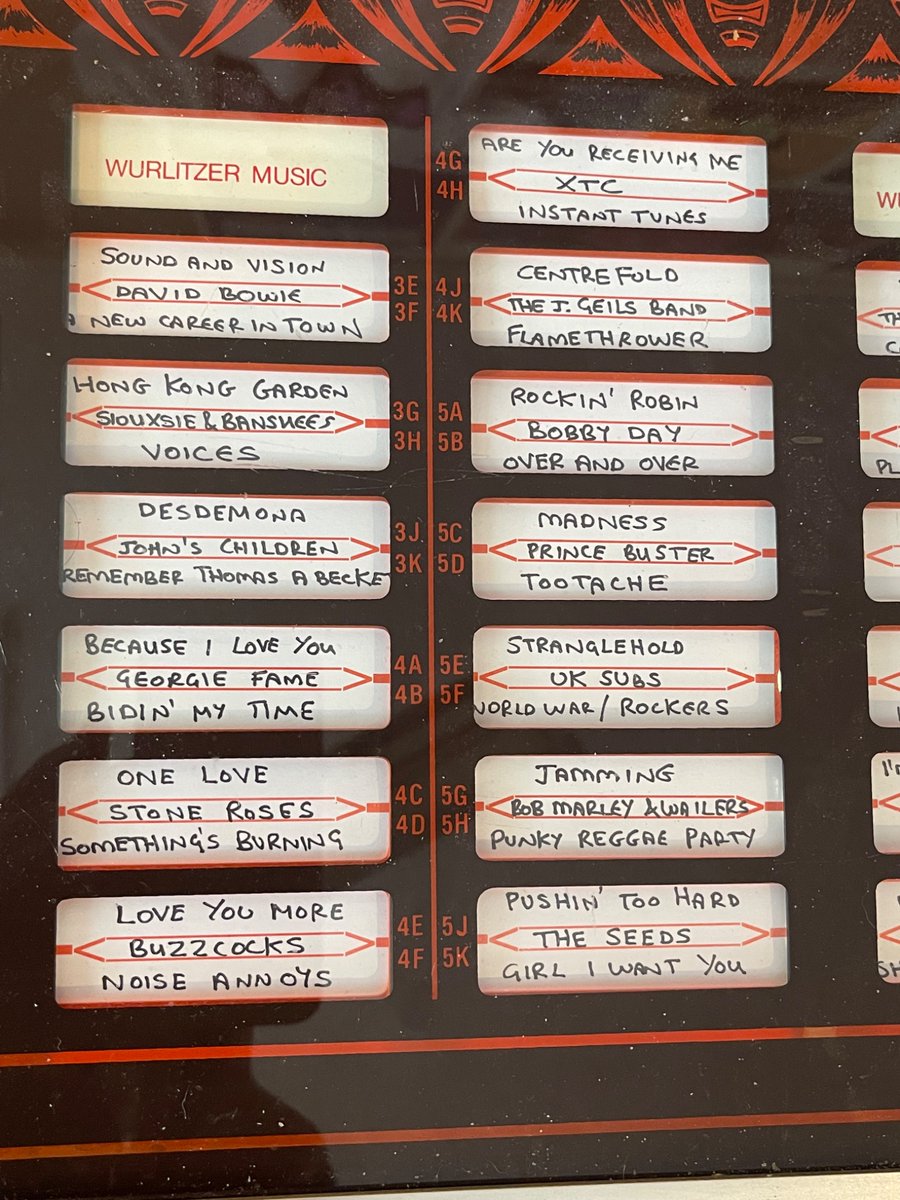 WURLITZER MUSIC
SOUND AND VISION
DAVID BOWIE
NEW CAREER IN TOWN
3E
3F
HONG KONG GARDEN
SIOUXSIE & BANSHEES
VOICES
3G
3H
DESDEMONA
JOHN'S CHILDREN
REMEMBER THOMAS A BECKET
3J
3K
BECAUSE I LOVE YOU
GEORGIE FAME
BIDIN' MY TIME
4A
4B
ONE LOVE
STONE ROSES
SOMETHING'S BURNING
4C
4D
LOVE YOU MORE
BUZZCOCKS
NOISE ANNOYS
4E
4F
4G
4H
ARE YOU RECEIVING ME
XTC
INSTANT TUNES
4J
4K
CENTREFOLD
THE J. GEILS BAND
FLAMETHROWER
5A
5B
ROCKIN' ROBIN
BOBBY DAY
OVER AND OVER
5C
5D
MADNESS
PRINCE BUSTER
TOOTACHE
5E
5F
STRANGLEHOLD
UK SUBS
WORLD WAR / ROCKERS
5G
5H
JAMMING
BOB MARLEY & WAILERS
PUNKY REGGAE PARTY
5J
5K
PUSHIN' TOO HARD
THE SEEDS
GIRL I WANT YOU